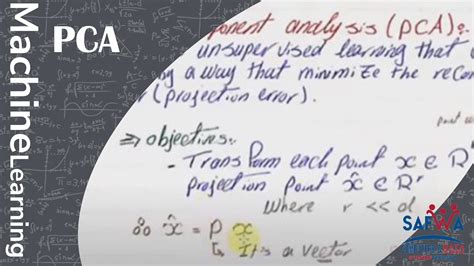 Machine Learning
PCA
ponent analysis (PCA):
unsupervised learning that
by a way that minimize the reco
r (projection error).
point w
⇒ objectives:
- Transform each point x ∈ R
projection point x̂ ∈ Rʳ
where r << d
∴ x̂ = P x
↳ It is a vector
SAFWA